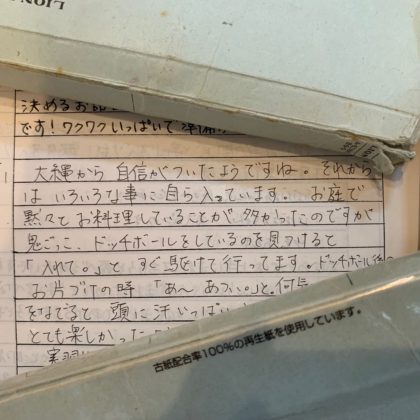 LION
決めるお話
です!ワクワクいっぱいで準備
大縄から自信がついたようですね。それから
はいろいろな事に自ら入っています。お庭で
黙々とお料理していることが多かったのですが
鬼ごっこ、ドッチボールをしているのを見つけると
「入れて。」とすぐ駆けて行ってます。ドッチボール後の
お片づけの時「あ〜あつい。」と
をなでると頭に汗いっぱい
とても楽しかった
実習
古紙配合率100%の再生紙を使用しています。